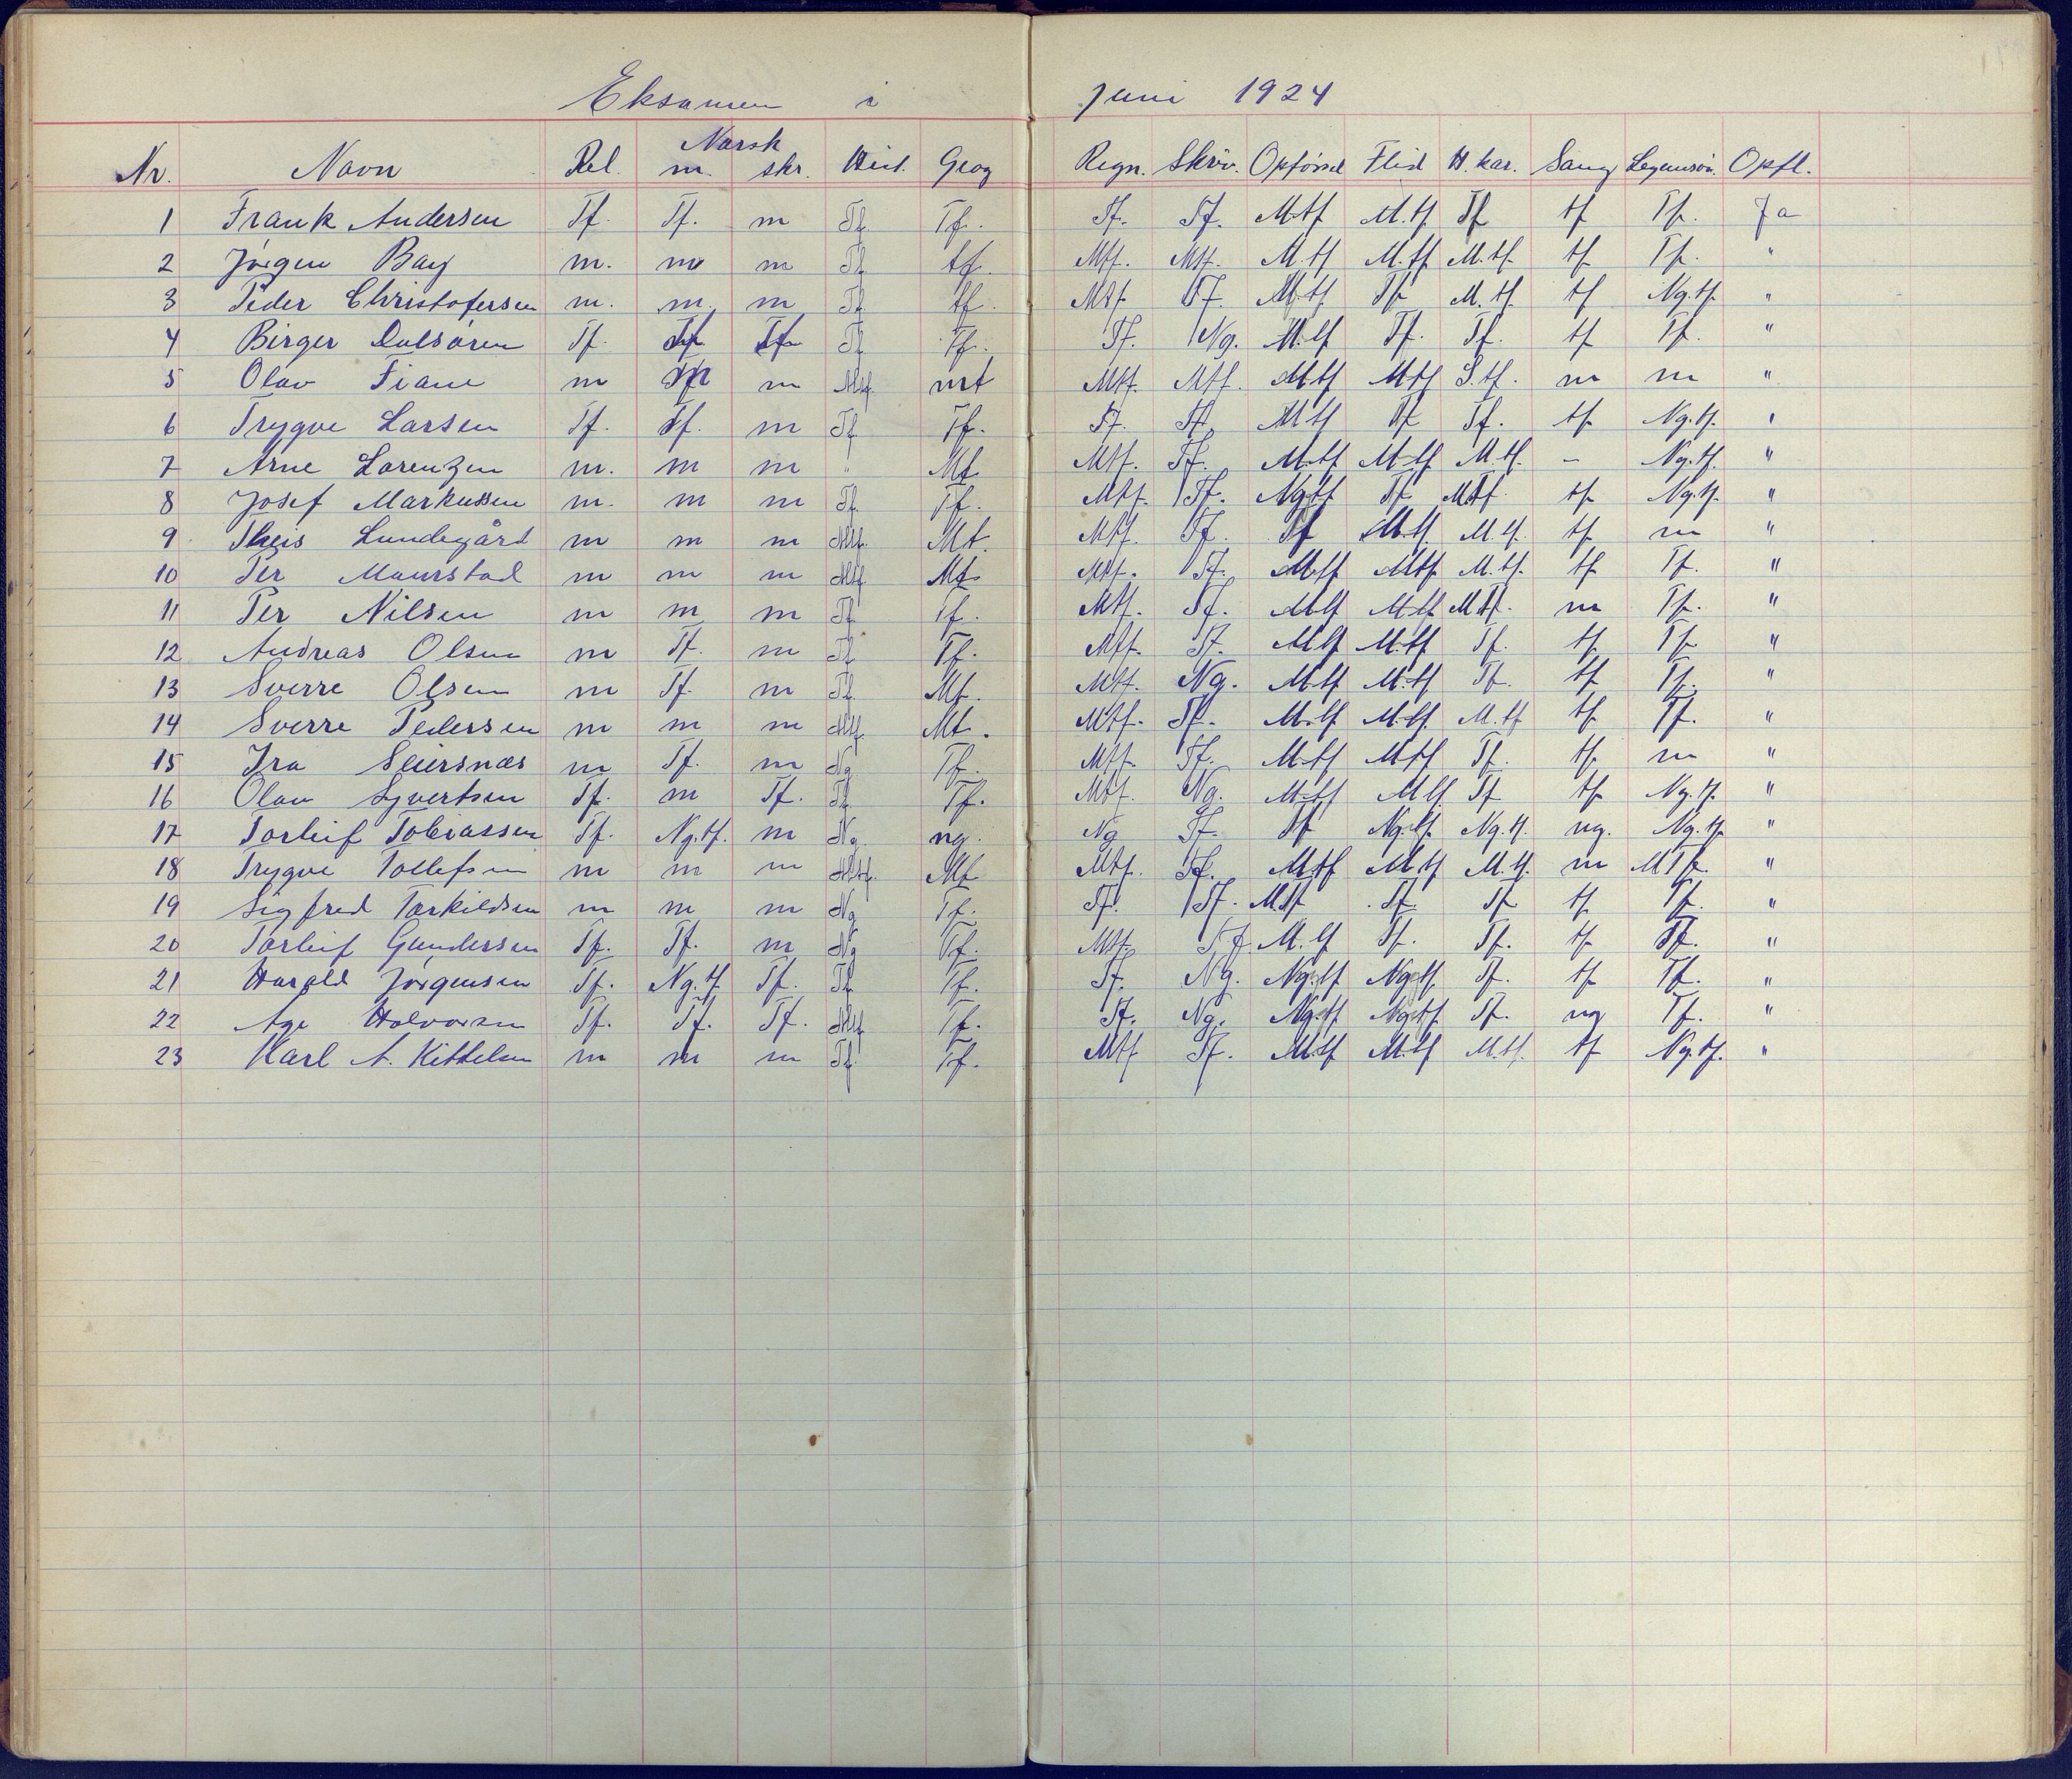 Eksamen i juni 1924
Norsk
Nr. Navn Rel. m. skr. Hist. Geog Regn. Skriv. Opførsel Flid H. kar. Sang Legemsøv. Opfl.
1 Frank Andersen Tf. Tf. m Tf. Tf. Tf. Tf. Mtf M.tf Tf tf Tf. Ja
2 Jørgen Bay m. m m Tf. tf. Mtf. Mtf. M.tf M.tf M.tf tf Tf. "
3 Peder Christofersen m. m. m Tf. tf. Mtf. Tf. M.tf Tf M.tf. tf Ng.tf. "
4 Birger Dalsøren Tf. Tf. Tf Tf. Tf. Tf. Ng. M.tf Tf. Tf. tf Tf. "
5 Olav Fiane m m m Mtf. mt Mtf. Mtf. M.tf M.tf S.tf. m m "
6 Trygve Larsen Tf. Tf. m Tf. Tf. Tf. Tf. M.tf Tf Tf. tf Ng.tf. "
7 Arne Lorenzen m. m m " Mt Mtf. Tf. M.tf M.tf M.tf. – Ng.tf. "
8 Josef Markussen m. m m Tf. Tf. Mtf. Tf. Ng.tf Tf Mtf. tf Ng.tf. "
9 Theis Lundegård m m m Mtf. Mt. Mtf. Tf. Tf M.tf. M.tf. tf m "
10 Per Maurstad m m m Mtf. Mt Mtf. Tf. M.tf Mtf M.tf. tf Tf. "
11 Per Nilsen m m m Tf. Tf. Mtf. Tf. M.tf M.tf M.tf. m Tf. "
12 Andreas Olsen m Tf. m Tf. Tf. Mtf. Tf. M.tf M.tf Tf. tf Tf. "
13 Sverre Olsen m Tf. m Tf. Mt. Mtf. Ng. M.tf M.tf Tf. tf Tf. "
14 Sverre Pedersen m m m Mtf. Mt. Mtf. Tf. M.tf M.tf. M.tf tf Tf. "
15 Ira Seiersnæs m Tf. m Ng. Tf. Mtf. Tf. M.tf M.tf Tf. tf m "
16 Olav Syvertsen Tf. m Tf. Tf. Tf. Mtf. Ng. M.tf M.tf Tf tf Ng.tf. "
17 Torleif Tobiassen Tf. Ng.tf. m Ng. ng. Ng Tf. Tf Ng.tf. Ng.tf. ng. Ng.tf. "
18 Trygve Tollefsen m m m Mtf. Mt Mtf. Tf. M.tf M.tf M.tf. m MTf. "
19 Sigfred Torkildsen m m m Ng Tf. Tf. Tf. M.tf Tf. Tf tf Tf. "
20 Torleif Gundersen Tf. Tf. m Ng Tf. Mtf. Tf. M.tf Tf. Tf. tf Tf. "
21 Harald Jørgensen Tf. Ng.tf Tf. Tf. Tf. Tf. Ng. Ng.tf Ng.tf. Tf. tf Tf. "
22 Age Halvorsen Tf. Tf. Tf. Mtf. Tf. Tf. Ng. Ng.tf Ng.tf Tf. ng Tf. "
23 Karl A. Kittelsen m m m Tf. Tf. Mtf Tf. M.tf M.tf M.tf. tf Ng.tf. "